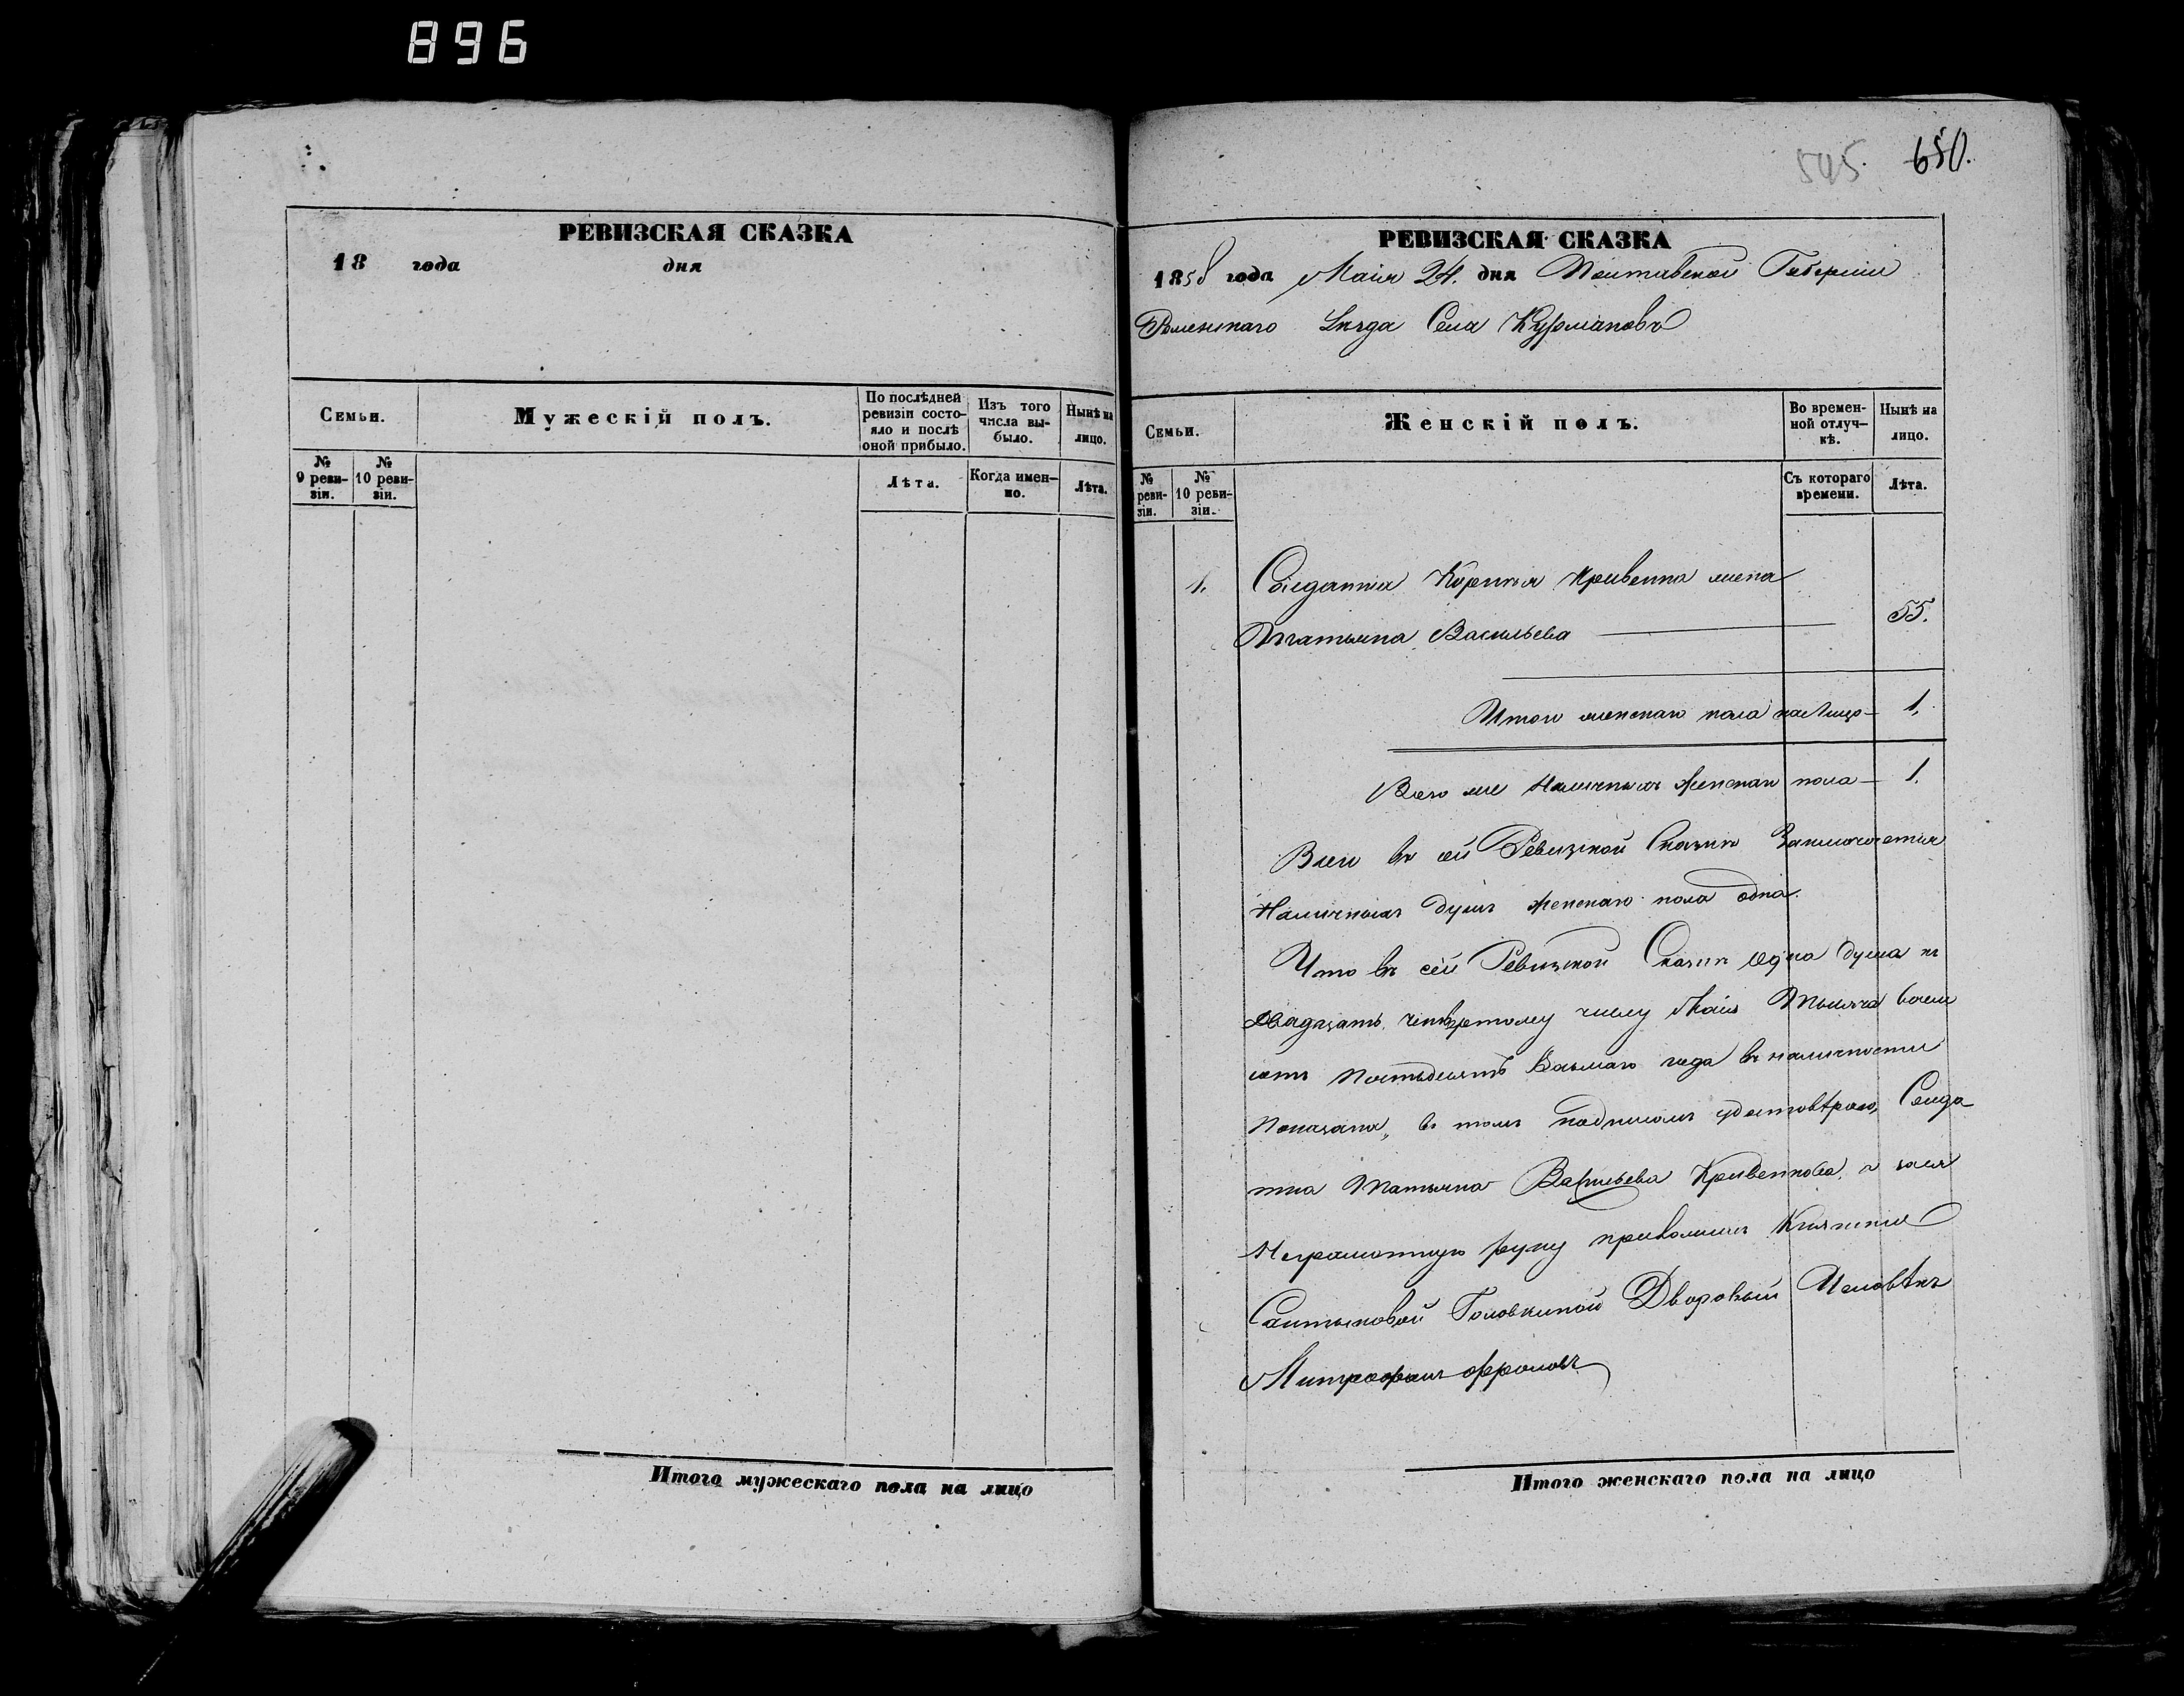 896
РЕВИЗСКАЯ СКАЗКА
18 года дня
Семьи.
Мужескій полъ.
По послѣдней ревизіи состо-яло и послѣ оной прибыло.
Изъ того числа вы-было.
Нынѣ на лицо.
№ 9 реви-зіи.
№ 10 реви-зіи.
Лѣта.
Когда имен-но.
Лѣта.
Итого мужескаго пола на лицо
545. 650.
РЕВИЗСКАЯ СКАЗКА
1858 года Маія 24. дня Полтавской Губерніи
Роменскаго Уѣзда Села Курмановъ
Семьи.
Женскій полъ.
Во времен-ной отлуч-кѣ.
Нынѣ на лицо.
№ реви-зіи.
№ 10 реви-зіи.
Съ котораго времени.
Лѣта.
1. Солдатка Корнѣя Кривенка жена
Татьяна Васильева 55.
Итого женскаго пола на Лицо 1.
Всего же Наличныхъ Женскаго пола 1.
Всего въ сей Ревизской Сказкѣ Заключается
Наличныхъ душъ женскаго пола одна.
Что въ сей Ревизской Сказкѣ Одна душа къ
двадцать четвертому числу Маія Тысяча восем
сотъ Пятьдесятъ Восьмаго года въ наличности
Показана, въ томъ подписомъ удостовѣряю, Солда
тка Татьяна Васильева Кривенкова, а за ея
Неграмотную руку приложилъ Княгини
Салтыковой Головкиной Дворовый Человѣкъ
Митрофанъ Фроловъ
Итого женскаго пола на лицо